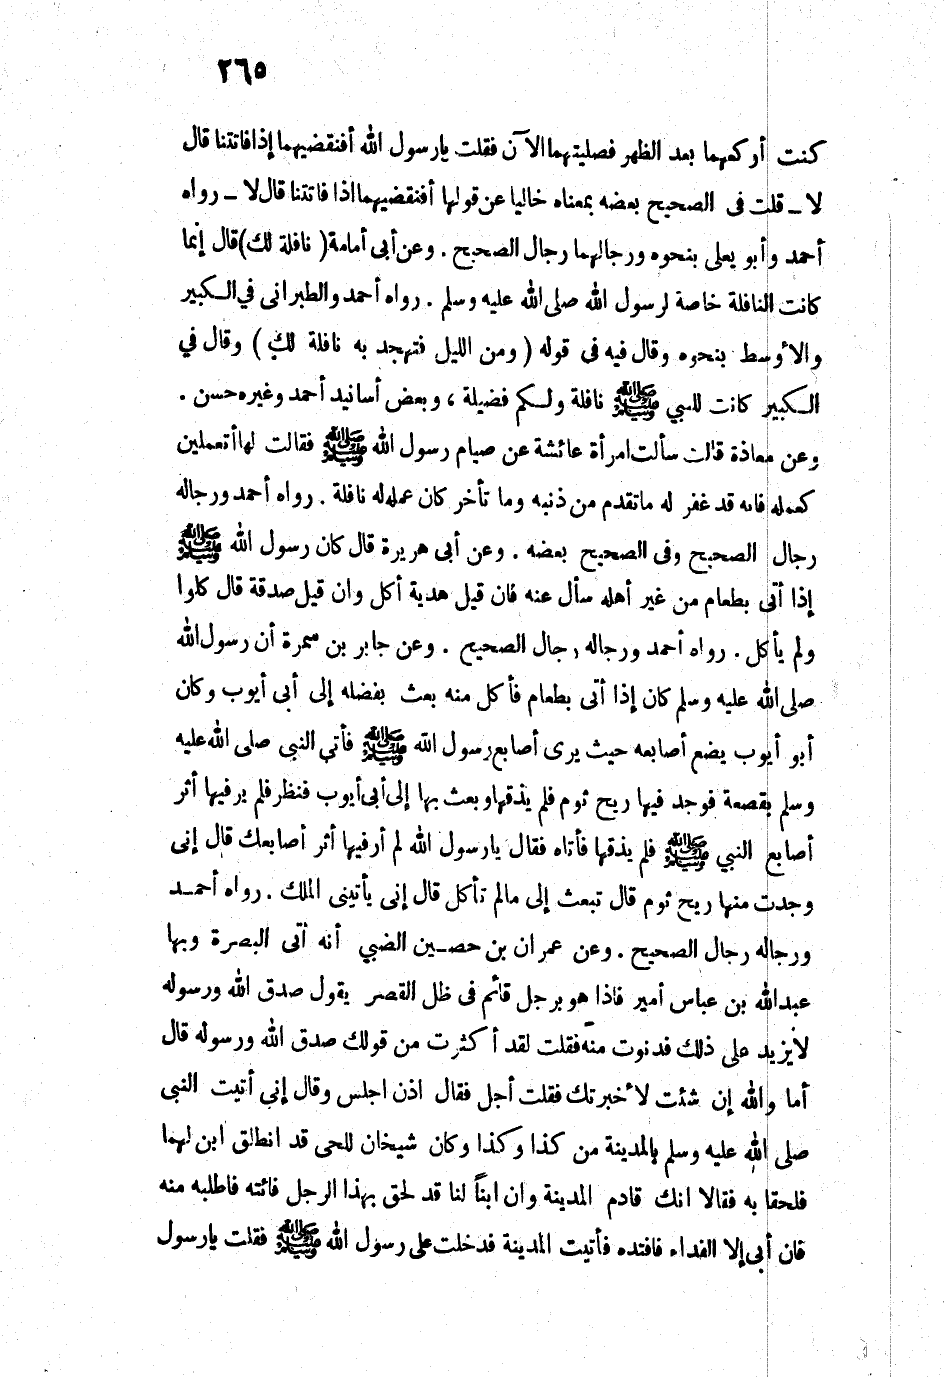 ٢٦٥
كنت أركعهما بعد الظهر فصليتهما الآن فقلت يارسول الله أفنقضيهما إذا فاتتنا قال
لا ــ قلت فى الصحيح بعضه بمعناه خاليا عن قولها أفنقضيهما اذا فاتتنا قال لا ــ رواه
أحمد وأبو يعلى بنحوه ورجالهما رجال الصحيح . وعن أبى أمامة ( نافلة لك ) قال إنما
كانت النافلة خاصة لرسول الله صلى الله عليه وسلم . رواه أحمد والطبرانى في الكبير
والأوسط بنحوه وقال فيه فى قوله ( ومن الليل فتهجد به نافلة لك ) وقال في
الكبير كانت للنبي ﷺ نافلة ولكم فضيلة ، وبعض أسانيد أحمد وغيره حسن .
وعن معاذة قالت سألت امرأة عائشة عن صيام رسول الله ﷺ فقالت لها أتعملين
كعمله فانه قد غفر له ماتقدم من ذنبه وما تأخر كان عمله له نافلة . رواه أحمد ورجاله
رجال الصحيح وفى الصحيح بعضه . وعن أبى هريرة قال كان رسول الله ﷺ
إذا أتى بطعام من غير أهله سأل عنه فان قيل هدية أكل وان قيل صدقة قال كلوا
ولم يأكل . رواه أحمد ورجاله رجال الصحيح . وعن جابر بن سمرة أن رسول الله
صلى الله عليه وسلم كان إذا أتى بطعام فأكل منه بعث بفضله إلى أبى أيوب وكان
أبو أيوب يضع أصابعه حيث يرى أصابع رسول الله ﷺ فأتي النبى صلى الله عليه
وسلم بقصعة فوجد فيها ريح ثوم فلم يذقها وبعث بها إلى أبى أيوب فنظر فلم ير فيها أثر
أصابع النبي ﷺ فلم يذقها فأتاه فقال يارسول الله لم أر فيها أثر أصابعك قال إنى
وجدت منها ريح ثوم قال تبعث إلى مالم تأكل قال إنى يأتينى الملك . رواه أحمد
ورجاله رجال الصحيح . وعن عمران بن حصين الضبي أنه أتى البصرة وبها
عبدالله بن عباس أمير فاذا هو برجل قائم فى ظل القصر يقول صدق الله ورسوله
لايزيد على ذلك فدنوت منه فقلت لقد أكثرت من قولك صدق الله ورسوله قال
أما والله إن شئت لأخبرتك فقلت أجل فقال اذن اجلس وقال إني أتيت النبى
صلى الله عليه وسلم بالمدينة من كذا وكذا وكان شيخان للحى قد انطلق ابن لهما
فلحقا به فقالا انك قادم المدينة وان ابناً لنا قد لحق بهذا الرجل فائته فاطلبه منه
فان أبى إلا الفداء فافتده فأتيت المدينة فدخلت على رسول الله ﷺ فقلت يارسول